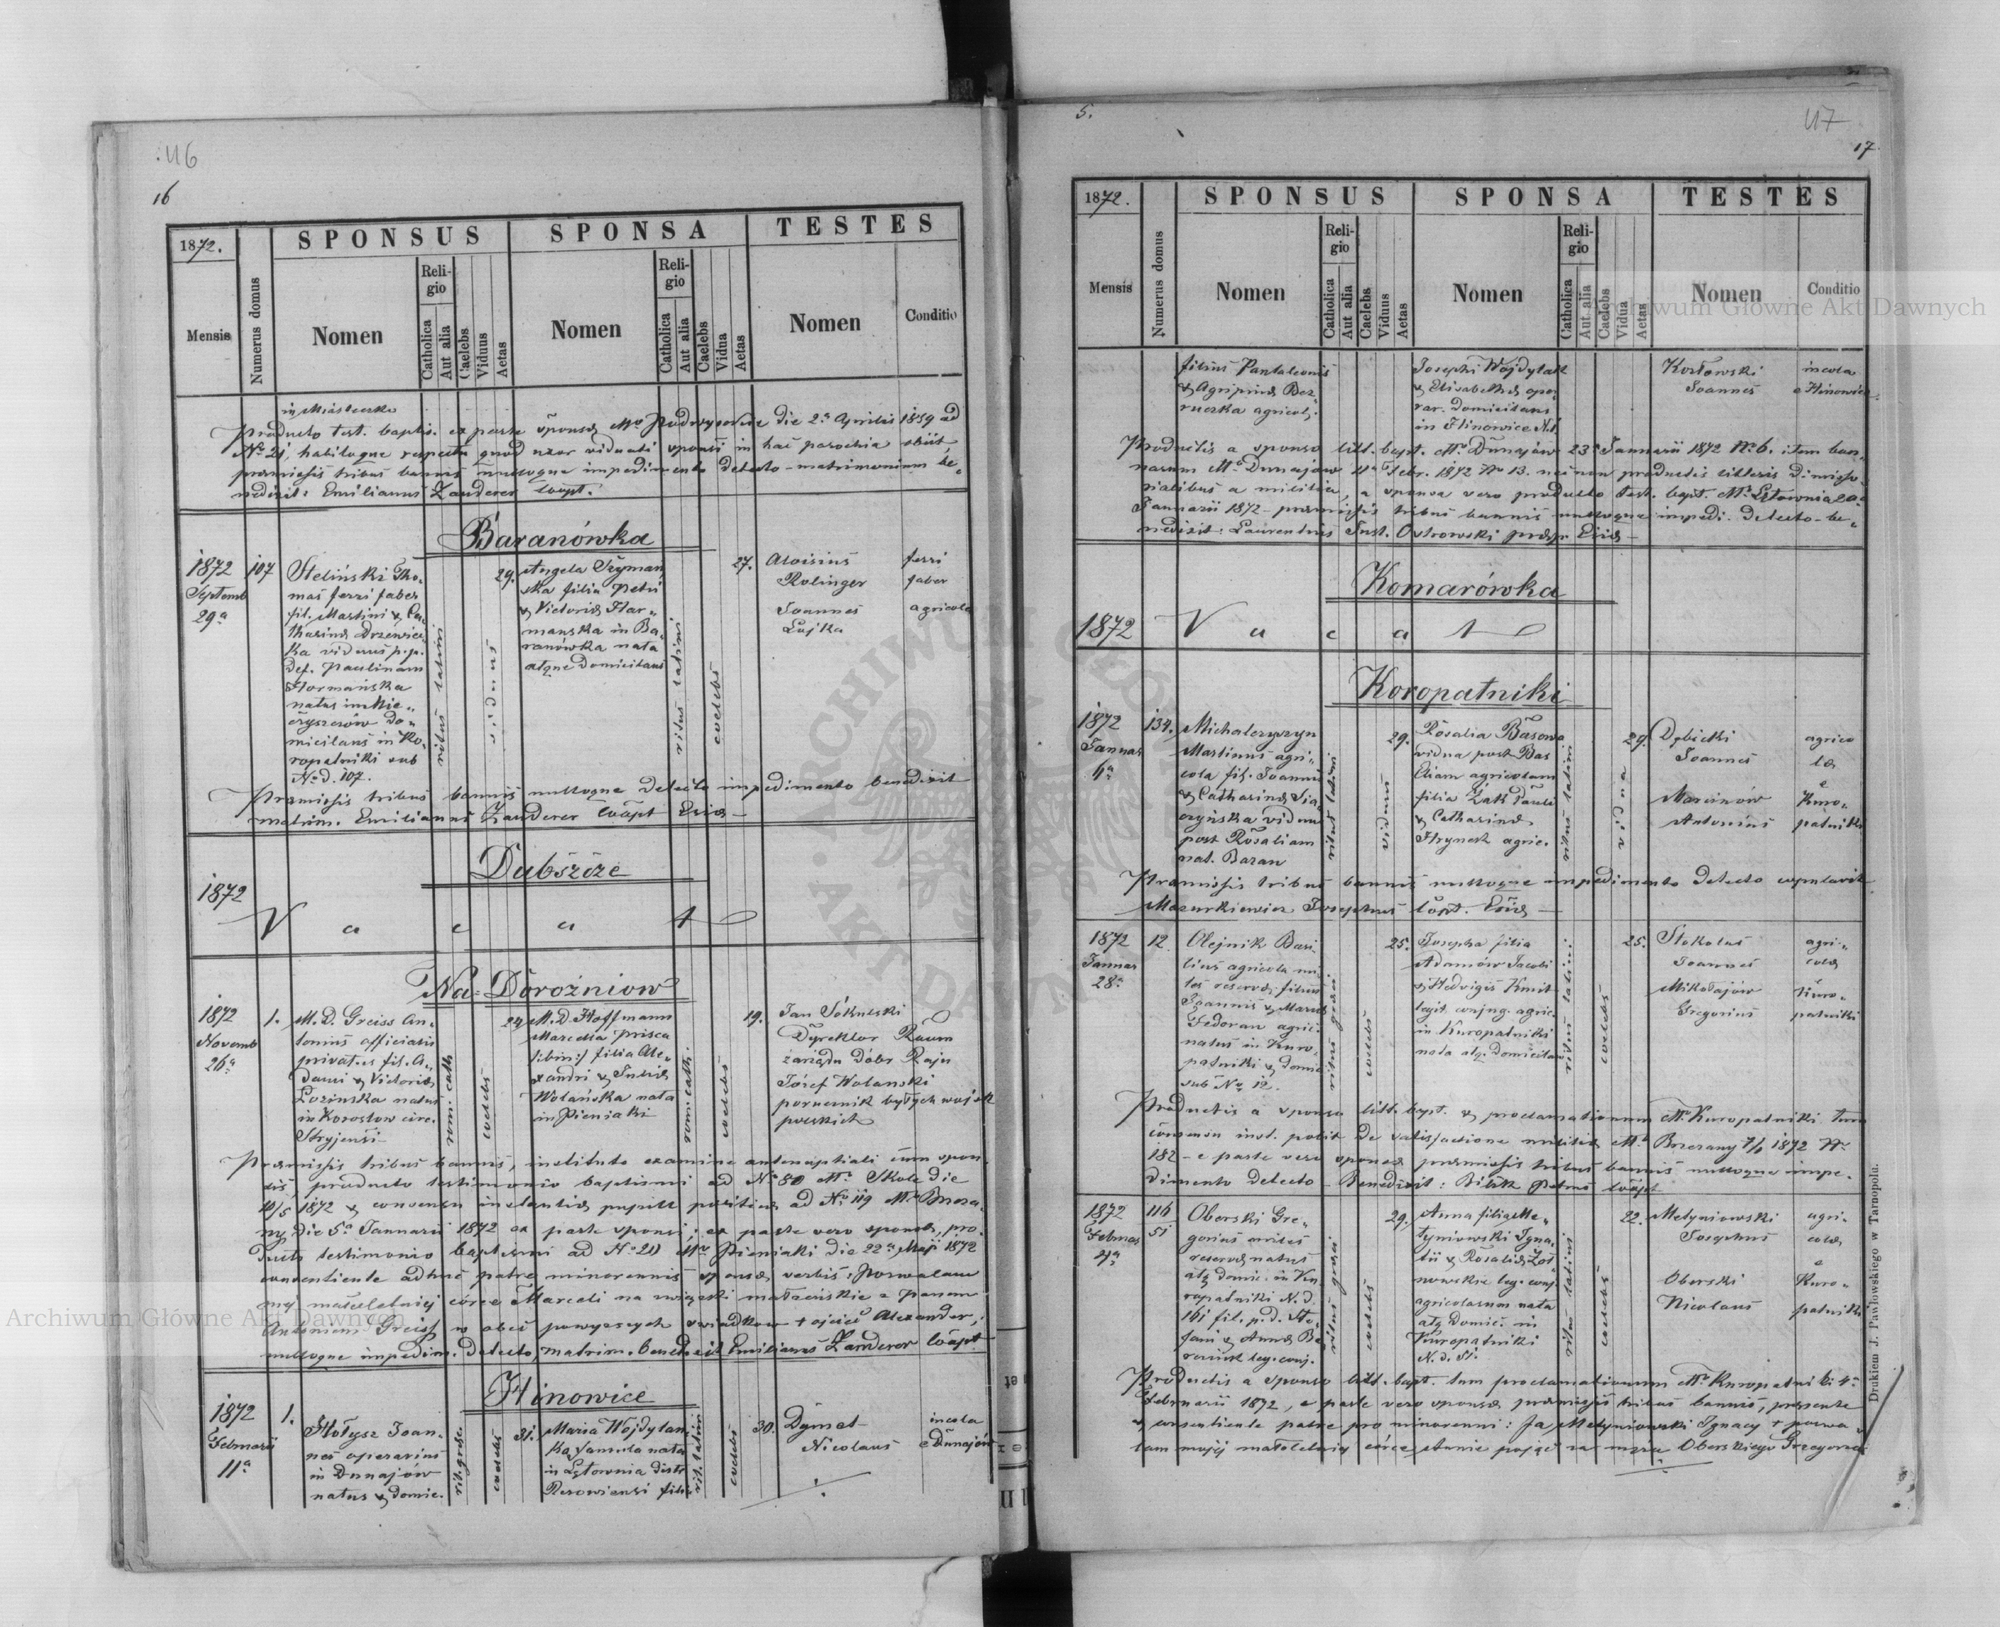 116
16
1872.
SPONSUS SPONSA TESTES
Mensis
Numerus domus
Nomen
Religio
Catholica
Aut alia
Caelebs
Viduus
Aetas
Nomen
Religio
Catholica
Aut alia
Caelebs
Vidua
Aetas
Nomen
Conditio
in Miasteczko
Producto test. baptis. ex parte sponsæ die 2a Aprilis 1859 ad
No 21, habitoque respectu quod uxor viduati sponsi in hac parochia obiit
præmissis tribus bannis nulloque impedimento detecto - matrimonium be-
nedixit: Emilianus Zauderer Coopt.
Baranówka
1872
Septemb
29a
107
Steliński Tho-
mas ferri faber
fil. Martini & Ca-
tharinæ Drzewiec-
ka viduus p. p.
def. Paulinam
Hormańska
natus in Mie-
czyszczów do-
micilans in Ko-
ropatniki sub
No d. 107.
ritus latini
viduus
29.
Angela Szyman
ska filia Petri
& Victoriæ Hor-
manska in Ba-
ranówka nata
atque domicilans
ritus latini
coelebs
27.
Aloisius
Rolinger
Joannes
Lujka
ferri
faber
agricola
Præmissis tribus bannis nulloque detecto impedimento benedixit
matrim. Emilianus Zauderer Coopt
Dubszcze
1872
V a c a t
Na Dorożniow
1872
Novemb
26a
1.
M. D. Greiss An-
tonius officialis
privatus fil. A-
dami & Victoriæ
Łozinska natus
in Korostow circ.
Stryjensi
rom. cath
coelebs
24
M. D. Hoffmann
Marcella prisca
filia Ale-
xandri & Juliæ
Wolańska nata
in Pieniaki
rom. cath.
coelebs
19.
Jan
Dyrektor
zarządu Dóbr
Józef Wolanski
porucznik byłych wojsk
polskich
Præmissis tribus bannis, instituto examine antenuptiali cum spon-
sis, producto testimonio baptismi ad No 80 Mo Skole die
1872 & consensu instantiæ pupill politica ad No 119 Mo Brzeza-
ny die 5a Januarii 1872 ex parte sponsi; ex parte vero sponsæ, pro-
ducto testimonio baptismi ad No 20 Mo Pieniaki die 22a Maji 1872
consentiente adhuc patre minorennis sponsæ verbis: Pozwalam
mej małoletniej córce Marceli na związki małżeńskie z panem
Antonim Greiss w obec powyższych świadków + ojciec Alexander;
nulloque impedim. detecto, matrim. benedixit Emilianus Zauderer Coopt
Hinowice
1872
Februarii
11a
1.
Hołysz Joan-
nes operarius
in Dunajów
natus & domic.
rit. græc.
coelebs
31.
Maria Wojdyłan-
ka famula nata
in Łętownia distr
Rzeszowiensi filia
rit. latini
coelebs
30.
Dymet
Nicolaus
incola
e Dunajów
5.
117
17
1872.
SPONSUS SPONSA TESTES
Mensis
Numerus domus
Nomen
Religio
Catholica
Aut alia
Caelebs
Viduus
Aetas
Nomen
Religio
Catholica
Aut alia
Caelebs
Vidua
Aetas
Nomen
Conditio
filius Pantaleonis
& Agripinæ Bez-
ruczka agricol.
Josephi Wojdyłak
& Elisabethæ ope-
rar. domicilans
in Hinowice
Kozłowski
Joannes
incola
e Hinowice
Productis a sponso litt. bapt. Mo Dunajów 23a Januarii 1872 No 6. item ban-
norum Mo Dunajów 11a Febr. 1872 No 13. necnon productis litteris dimisso-
rialibus a militia, a sponsa vero producto test. bapt. Mo Łętownia
Januarii 1872 - præmissis tribus bannis nulloque impedi. detecto - be-
nedixit: Laurentius Just. Ostrowski
Komarówka
1872
V a c a t
Koropatniki
1872
Januar
6a
134.
Michalczyszyn
Martinus agri-
cola fil. Joannis
& Catharinæ Sia-
czyńska viduus
post Rosaliam
nat. Baran
ritus latini
viduus
29.
Rosalia Basowa
vidua post Bas
Eliam agricolam
filia Żak Pauli
& Catharinæ
Hrynek agric.
ritus latini
vidua
29.
Dębicki
Joannes
Marcinów
Antonius
agrico
læ
e
Kuro-
patniki
Præmissis tribus bannis nulloque impedimento detecto copulavit
Mazurkiewicz Josephus Coopt.
1872
Januar
28a
12.
Olejnik Basi-
lius agricola mi-
les reservæ filius
Joannis & Mariæ
Fedoran agric.
natus in Kuro-
patniki & domic
sub No 12.
ritus græci
coelebs
25.
Josepha filia
Adamów Jacobi
& Hedvigis Kmit
legit. conjug. agric.
in Kuropatniki
nata atq. domicilans
ritus latini
coelebs
25.
Stokolus
Joannes
Mikołajów
Gregorius
agri-
colæ
Kuro-
patniki
Productis a sponso litt. bapt. & proclamationum Mo Kuropatniki tum
consensu inst. polit de satisfactione militiæ Mo Brzezany 1872 No
182 - e parte vero sponsæ præmissis tribus bannis nulloque impe-
dimento detecto - Benedixit: Petrus Coopt
1872
Februar
4a
116
51
Oberski Gre-
gorius miles
reservæ natus
atq domic. in Ku-
ropatniki N. d.
161 fil. p. d. Ste-
fani & Annæ Be-
leg. conj.
ritus græci
coelebs
29.
Anna filia Me-
tyniowski Igna-
tii & Rosaliæ
leg. conj
agricolarum nata
atq domic. in
Kuropatniki
N. d. 51.
ritus latini
coelebs
22.
Metyniowski
Josephus
Oberski
Nicolaus
agri-
colæ
e
Kuro-
patniki
Productis a sponso litt. bapt. tum proclamationum Mo Kuropatniki 4a
Februarii 1872, e parte vero sponsæ præmissis tribus bannis, præsente
& consentiente patre pro minorenni: Ja Metyniowski Ignacy + pozwa-
lam mojej małoletniej córce Annie pojąć za męża Oberskiego Grzegorza
Drukiem J. Pawłowskiego w Tarnopolu.
Archiwum Główne Akt Dawnych
Archiwum Główne Akt Dawnych